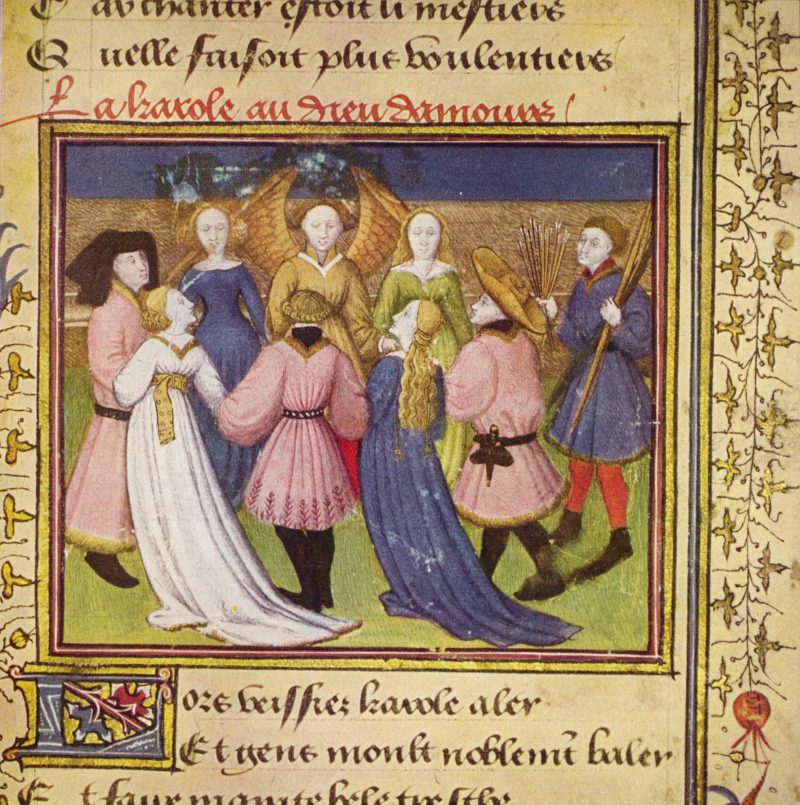 C ar chanter estoit li mestiers
Q uelle faisoit plus voulentiers
La karole au dieu damours
Lors veissiez karole aler
Et gens moult noblemt baler
E t faire mainte bele tresche